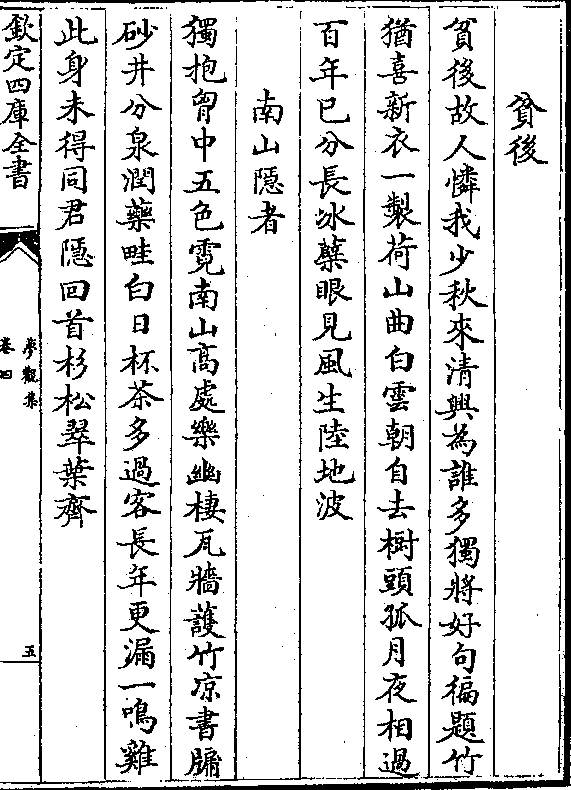 貧後
貧後故人憐我少秋來清興為誰多獨將好句徧題竹
猶喜新衣一製荷山曲白雲朝自去樹頭孤月夜相過
百年已分長冰蘗眼見風生陸地波
南山隱者
獨抱胷中五色霓南山髙處樂幽棲瓦牆護竹凉書牖
砂井分泉潤藥畦白日杯茶多過客長年更漏一鳴雞
此身未得同君隱回首杉松翠葉齊
欽定四庫全書
夢觀集
卷四
五